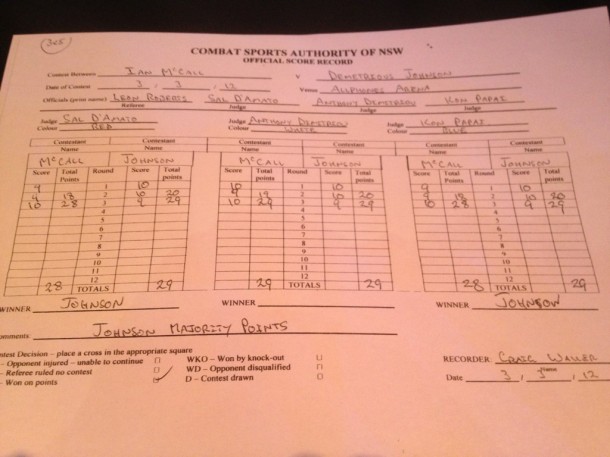 365
COMBAT SPORTS AUTHORITY OF NSW
OFFICIAL SCORE RECORD
Contest Between IAN McCALL v DEMETRIOUS JOHNSON
Date of Contest 3 , 3 , 12 Venue ALLPHONES ARENA
Officials (print name) LEON ROBERTS SAL D'AMATO ANTHONY DEMETRIOU KON PAPAS
Referee Judge Judge Judge
Judge SAL D'AMATO Judge ANTHONY DEMETRIOU Judge KON PAPAS
Colour RED Colour WHITE Colour BLUE
Contestant Contestant Contestant Contestant Contestant Contestant
Name Name Name Name Name Name
McCALL JOHNSON McCALL JOHNSON McCALL JOHNSON
Score Total Points Round Score Total points Score Total Points Round Score Total points Score Total Points Round Score Total points
9 1 10 10 1 10 9 1 10
9 18 2 10 20 9 19 2 10 20 9 18 2 10 20
10 28 3 9 29 10 29 3 9 29 10 28 3 9 29
4 4 4
5 5 5
6 6 6
7 7 7
8 8 8
9 9 9
10 10 10
11 11 11
12 12 12
28 TOTALS 29 29 TOTALS 29 28 TOTALS 29
WINNER JOHNSON WINNER WINNER JOHNSON
mments JOHNSON MAJORITY POINTS
ntest Decision – place a cross in the appropriate square
– Opponent injured – unable to continue WKO – Won by knock-out RECORDER CRAIG WALLER
– Referee ruled no contest WD – Opponent disqualified
– Won on points D – Contest drawn Date 3 , 3 , 12